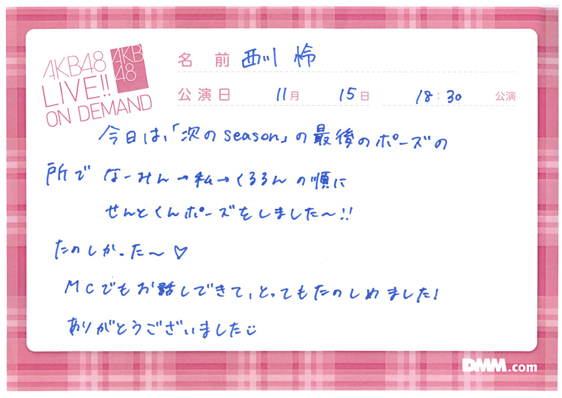 AKB48
LIVE!!
ON DEMAND
AKB
48
名前 西川 怜
公演日 11月 15日 18:30 公演
今日は、「次のseason」の最後のポーズの
所で なーみん→私→くるるんの順に
せんとくんポーズをしました〜!!
たのしかった〜♡
MCでもお話しできて、とってもたのしめました!
ありがとうございました
DMM.com